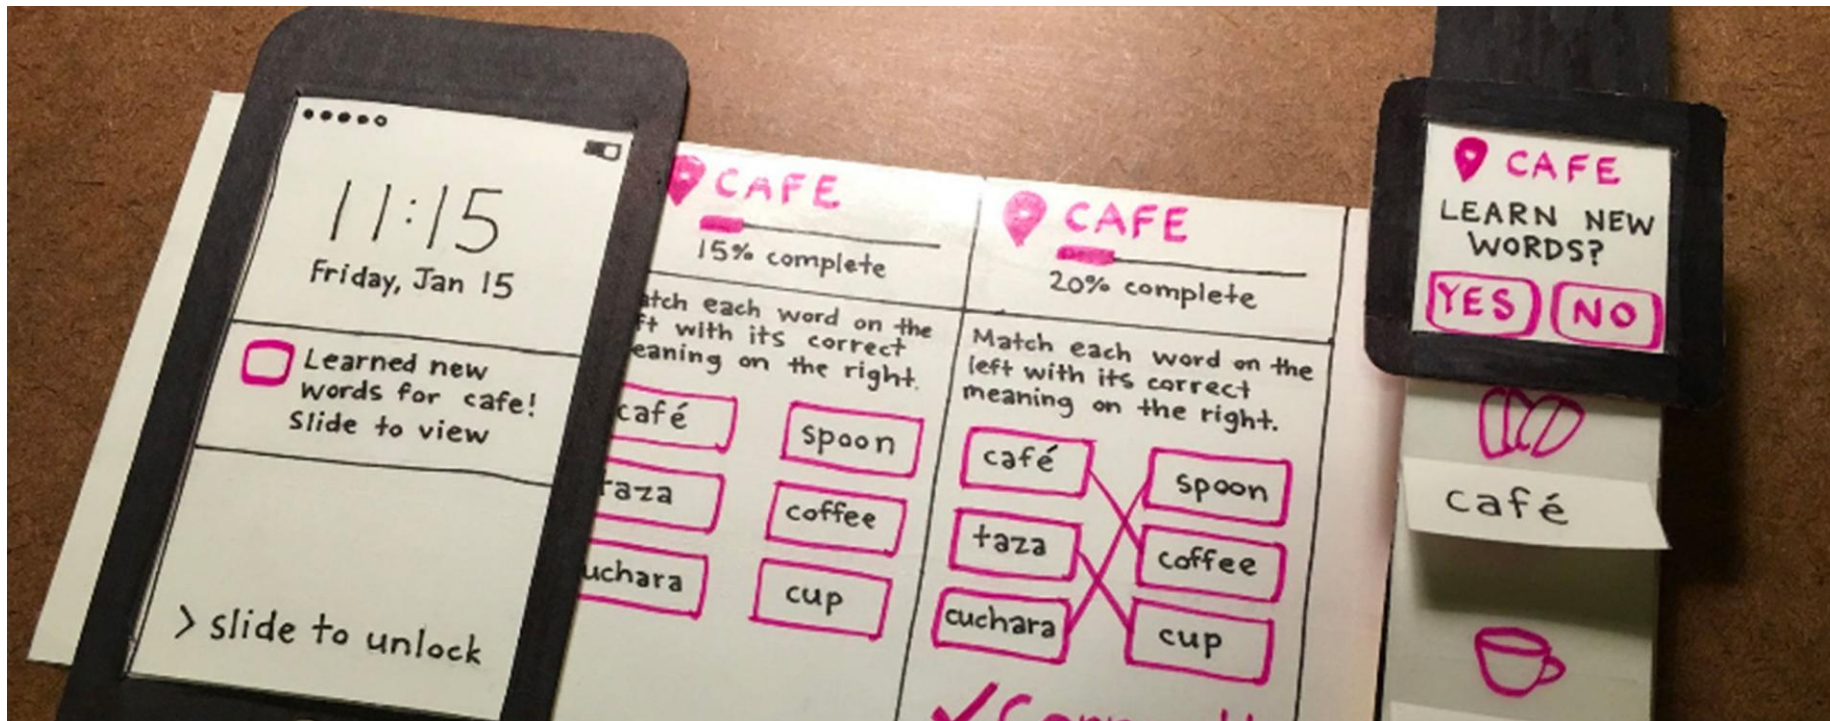 11:15
Friday, Jan 15
Learned new
words for cafe!
Slide to view
> slide to unlock
CAFE
15% complete
atch each word on the
ft with its correct
eaning on the right.
café
spoon
taza
coffee
uchara
cup
CAFE
20% complete
Match each word on the
left with its correct
meaning on the right.
café
spoon
taza
coffee
cuchara
cup
CAFE
LEARN NEW
WORDS?
YES NO
café